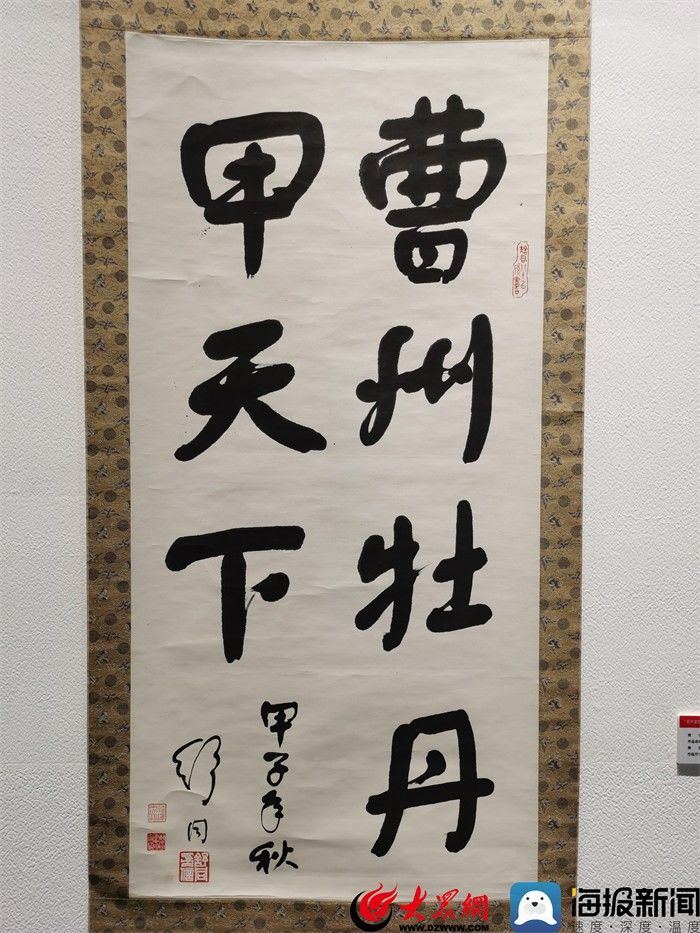 曹州牡丹
甲天下
甲子年秋
舒同
大眾網
WWW.DZWWW.COM
海报新闻
速度·深度·温度